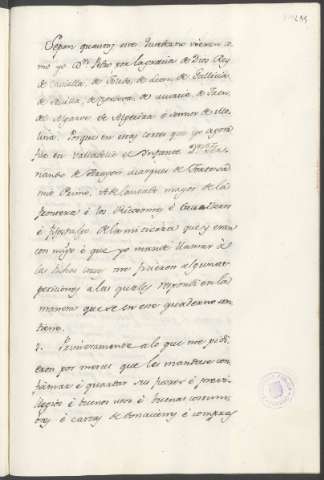 Sepan quantos este Quaderno vieren co
mo yo Dn. Pedro por la gracia de Dios Rey
de Castilla, de Toledo, de Leon, de Gallicia,
de Sevilla, de Cordova, de Murcia de Jaen,
de Algarve de Algecira é señor de Mo
lina. Porque en estas cortes que yo agora
fize en Valladolid el Infante Dn. Fer
nando de Aragon Marques de Tortosa
mio Primo, Adelantado mayor de la
frontera é los Ricosomes é Cavalleros
é fijosdalgo de la mi tierra que y eran
con migo é que yo mandé llamar à
las dichas cortes me fizieron algunas
peticiones a las quales respondi en la
manera que se en este quaderno con
tiene.
1. Primeramente a lo que me pidi
eron por merced que les mandase con
firmar é guardar sus fueros é previ
llegios é buenos usos é buenas costum
bres é cartas de donaciones é compras